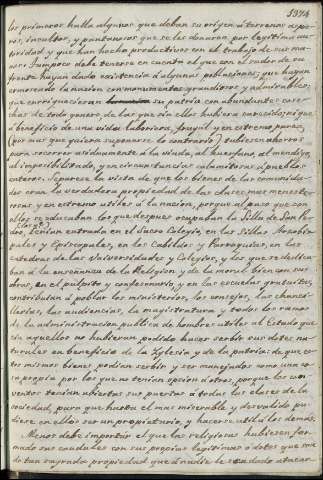 los primeros halla algunos que deban su origen á terrenos aspe-
ros, incultos, y pantanosos que se les donaron por legitima au-
toridad y que han hecho productivos con el trabajo de sus ma-
nos: Tampoco debe tenerse en cuenta el que con el sudor de su
frente hayan dado existencia á algunas poblaciones; que hayan
ermoseado la nacion con monumentos grandiosos y admirables;
que enriquecieran su patria con abundantes cose-
chas de todo genero, de las que sin ellos hubiera carecido; ni que
á beneficio de una vida laboriosa, frugál y en estremo parca,
(por mas que quieran suponerse lo contrario) tubiesen ahorros
para socorrer asiduamente á la viuda, al huerfano, al mendigo
al imposibilitado, y en circunstancias calamitosas á pueblos
enteros. Separese la vista de que los bienes de las comunida-
des eran la verdadera propiedad de las clases mas meneste-
rosas y en estremo utiles á la nacion, porque al paso que con
ellos se educaban los que despues ocupaban la Silla de San Pe-
dro, tenian entrada en el Sacro Colegio, en las Sillas Arzobis-
pales y Episcopales, en los Cabildos y Parroquias, en las
catedras de las Universidades y Colegios, y los que se dedica-
ban á la enseñanza de la Religion y de la moral bien con sus
obras, en el pulpito y confesonario, y en las escuelas gratuitas,
contribuian á poblar los ministerios, los consejos, las chanci-
llerias, las audiencias, la magistratura y todos los ramos
de la administracion publica de hombres utiles al Estado que
sin aquellos no hubieran podido hacer servir sus dotes na-
turales en beneficio de la Iglesia y de la patria; de que es-
tos mismos bienes podian servir y ser manejados como una co-
sa propia por los que no tenian opcion á otros, porque los con-
ventos tenian abiertas sus puertas á todas las clases de la
sociedad, para que hasta el mas miserable y desvalido pu-
diese en ellos ser un propietario, y hacerse util á los demás.
Menos debe importar el que las religiosas hubiesen for-
mado sus caudales con sus propias legitimas ó dotes que son
de tan sagrada propiedad que á nadie le es dado atacar